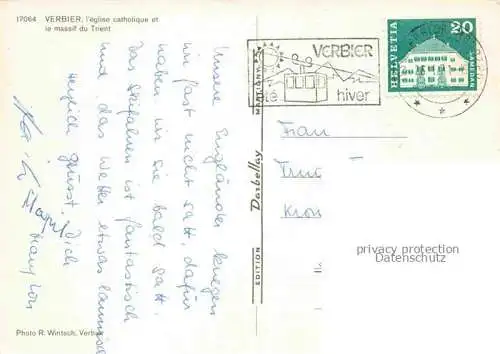 17064 VERBIER, l'église catholique et
le massif du Trient
Unsere Engländer kriegen
ihn fast nicht satt, dafür
haben wir sie bald satt.
Das Skifahren ist fantastisch
und das Wetter etwas launisch
Herzlich grüsst Dich
VERBIER
été hiver
MARTIGNY
HELVETIA
20
SAMEDAN
Frau
EDITION Darbellay
privacy protection
Datenschutz
Photo R. Wintsch, Verbier